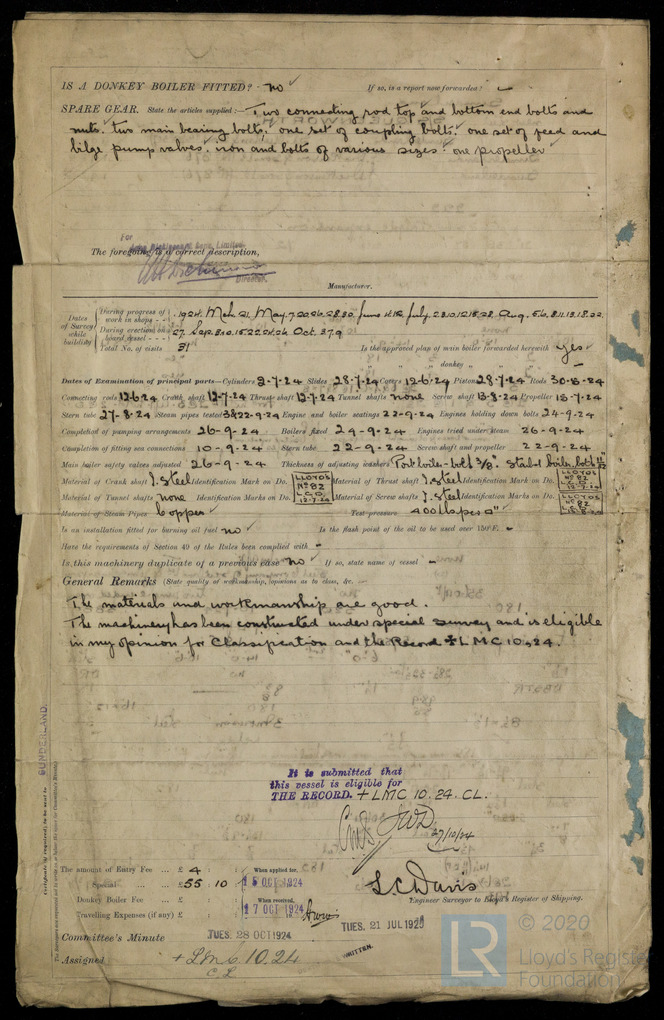 IS A DONKEY BOILER FITTED? no If so, is a report now forwarded? -
SPARE GEAR. State the articles supplied:- Two connecting rod top and bottom end bolts and
nuts. two main bearing bolts. one set of coupling bolts. one set of feed and
bilge pump valves. iron and bolts of various sizes. one propeller
For
The foregoing is a correct description,
Director.
Manufacturer.
Dates of Survey while building
During progress of work in shops - - 1924. Mch. 21. May. 7. 20. 26. 28. 30. June 4. 12. July. 2. 8. 10. 12. 15. 28. Aug. 5. 6. 8. 11. 13. 18. 22.
During erection on board vessel - - - 27. Sep. 8. 10. 15. 22. 24. 26. Oct. 3. 7. 9
Total No. of visits 31 Is the approved plan of main boiler forwarded herewith yes
" " " donkey " " " -
Dates of Examination of principal parts—Cylinders 2-7-24 Slides 28-7-24 Covers 12-6-24 Pistons 28-7-24 Rods 30-5-24
Connecting rods 12-6-24 Crank shaft 12-7-24 Thrust shaft 12-7-24 Tunnel shafts none Screw shaft 13-8-24 Propeller 15-7-24
Stern tube 27-8-24 Steam pipes tested 3 & 22-9-24 Engine and boiler seatings 22-9-24 Engines holding down bolts 24-9-24
Completion of pumping arrangements 26-9-24 Boilers fixed 24-9-24 Engines tried under steam 26-9-24
Completion of fitting sea connections 10-9-24 Stern tube 22-9-24 Screw shaft and propeller 22-9-24
Main boiler safety valves adjusted 26-9-24 Thickness of adjusting washers Port boiler - both 3/8". Starbd boiler, both 1/2"
Material of Crank shaft I. Steel Identification Mark on Do. LLOYDS No 82 L.C.D. 12-7-24 Material of Thrust shaft I. Steel Identification Mark on Do. LLOYDS No 82 L.C.D. 12-7-24
Material of Tunnel shafts none Identification Marks on Do. Material of Screw shafts I. Steel Identification Marks on Do. LLOYDS No 82
Material of Steam Pipes Copper Test pressure 400 lbs per □"
Is an installation fitted for burning oil fuel no Is the flash point of the oil to be used over 150°F. -
Have the requirements of Section 49 of the Rules been complied with -
Is this machinery duplicate of a previous case no If so, state name of vessel -
General Remarks (State quality of workmanship, opinions as to class, &c.
The materials and workmanship are good.
The machinery has been constructed under special survey and is eligible
in my opinion for Classification and the Record ✠ LMC 10,24.
SUNDERLAND.
It is submitted that
this vessel is eligible for
THE RECORD. + LMC 10.24. CL.
27/10/24
The amount of Entry Fee ... £ 4 : : When applied for,
Special ... £ 55 : 10 : 15 OCT 1924
Donkey Boiler Fee ... £ : : When received,
Travelling Expenses (if any) £ : : 17 OCT 1924
L.C. Davis
Engineer Surveyor to Lloyd's Register of Shipping.
Committee's Minute TUES. 28 OCT 1924
TUES. 21 JUL 1925
WRITTEN.
Assigned + LMC 10.24
C L
© 2020
LR
Lloyd's Register
Foundation